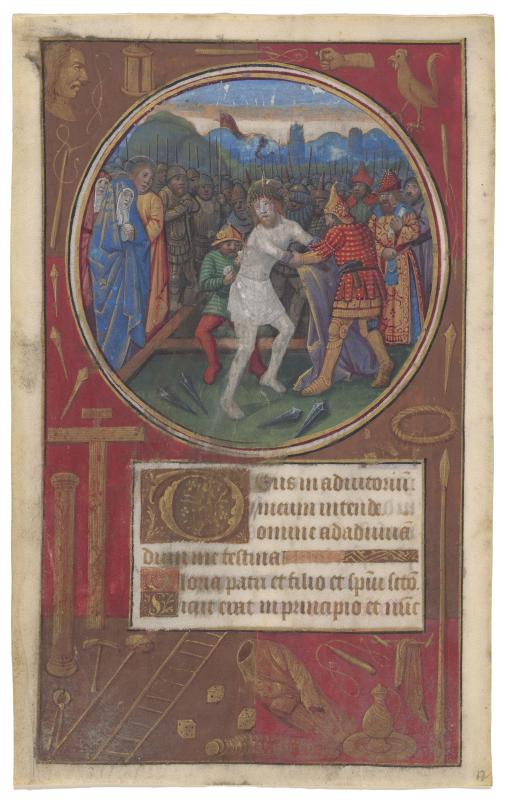 Deus in adiutoriũ
meum intende
omine ad adiuuã
dum me festina
Gloria patri et filio et spũi sctõ.
Sicut erat in principio et nũc